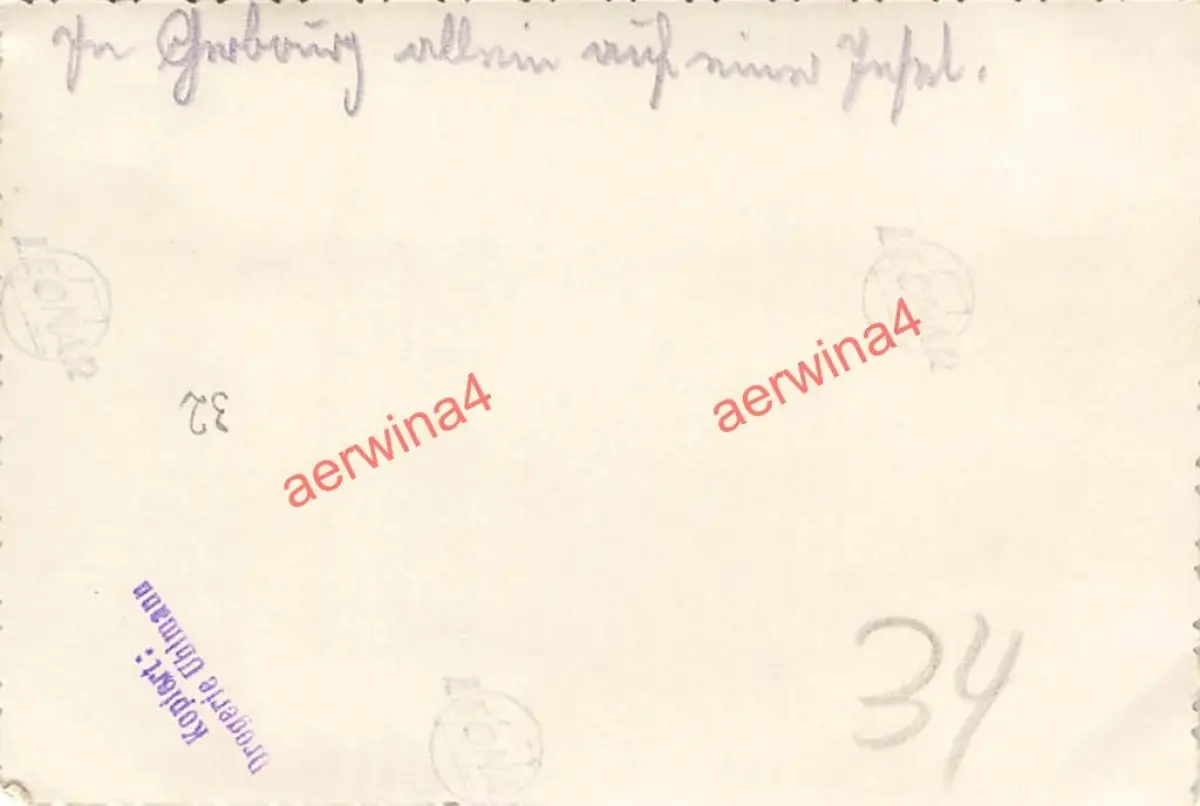 In Cherbourg allein auf einer Insel.
LEONAR
LEONAR
32
aerwina4
aerwina4
Kopiert:
Drogerie Uhlmann
34
LEONAR